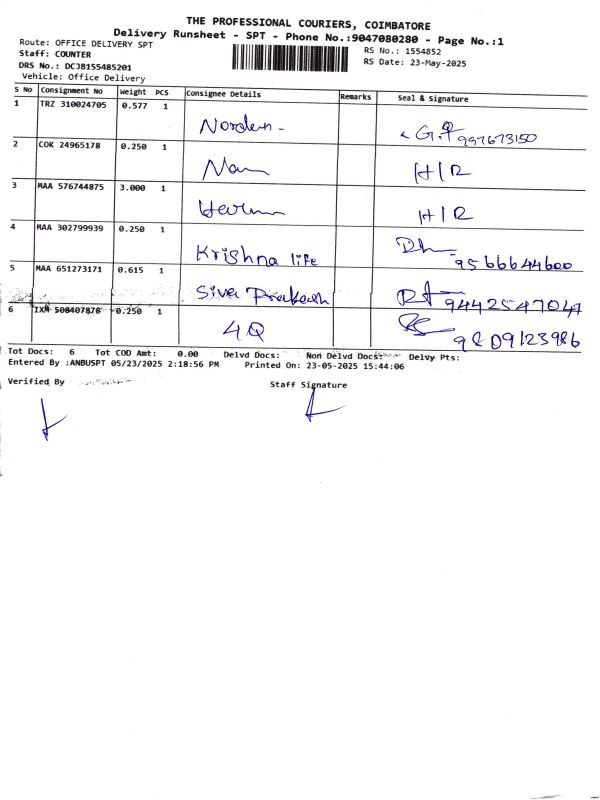 THE PROFESSIONAL COURIERS, COIMBATORE
Delivery Runsheet - SPT - Phone No.:9047080280 - Page No.:1
Route: OFFICE DELIVERY SPT
RS No.: 1554852
Staff: COUNTER
RS Date: 23-May-2025
DRS No.: DCJB155485201
Vehicle: Office Delivery
S No Consignment No Weight PCS Consignee Details Remarks Seal & Signature
1 TRZ 310024705 0.577 1
997673150
2 COK 24965178 0.250 1
H/R
3 MAA 576744875 3.000 1
H/R
4 MAA 302799939 0.250 1 Krishna life 9566644600
5 MAA 651273171 0.615 1 Siva Prakash 9442547047
6 IXM 508407878 0.250 1 4Q
Tot Docs: 6 Tot COD Amt: 0.00 Delvd Docs: Non Delvd Docs: Delvy Pts:
Entered By :ANBUSPT 05/23/2025 2:18:56 PM Printed On: 23-05-2025 15:44:06
Verified By Staff Signature